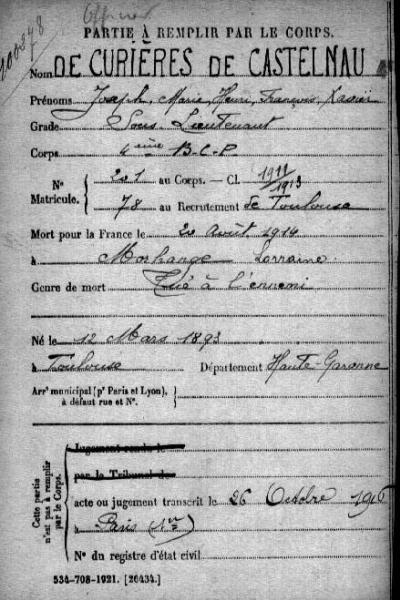 Officier
200378
PARTIE À REMPLIR PAR LE CORPS.
Nom DE CURIÈRES DE CASTELNAU
Prénoms Joseph, Marie, Henri, François, Xavier
Grade Sous-Lieutenant
Corps 4ème B-C-P
N° Matricule. 201 au Corps. — Cl. 1911/1913
78 au Recrutement de Toulouse
Mort pour la France le 20 Août 1914
à Morhange Lorraine
Genre de mort Tué à l'ennemi
Né le 12 Mars 1893
à Toulouse Département Haute-Garonne
Arrt municipal (pr Paris et Lyon),
à défaut rue et N°.
Cette partie n'est pas à remplir par le Corps.
Jugement rendu le
par le Tribunal de
acte ou jugement transcrit le 26 Octobre 1916
à Paris (1er)
N° du registre d'état civil
534-708-1921. [26434.]